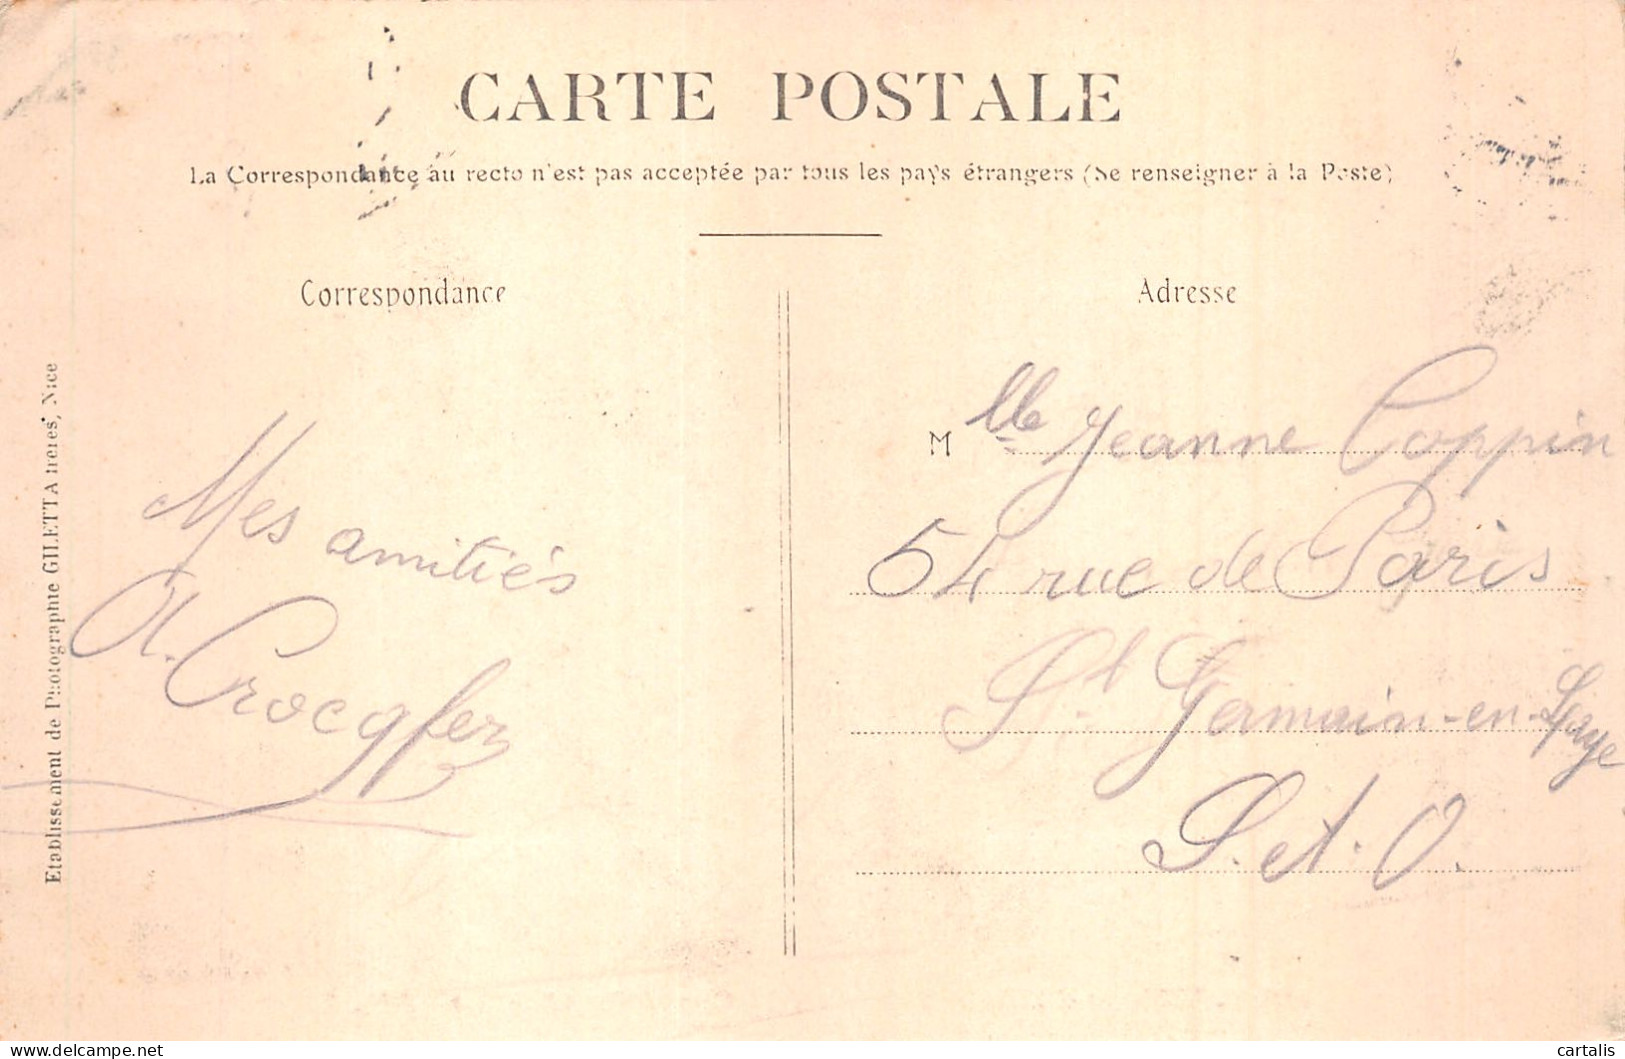 CARTE POSTALE
La Correspondance au recto n'est pas acceptée par tous les pays étrangers (Se renseigner à la Poste)
Correspondance
Mes amitiés
A.
Adresse
Mlle Jeanne Coppin
54 rue de Paris
St Germain-en-Laye
S. et. O.
Etablissement de Photographie GILETTA frères, Nice
cartalis